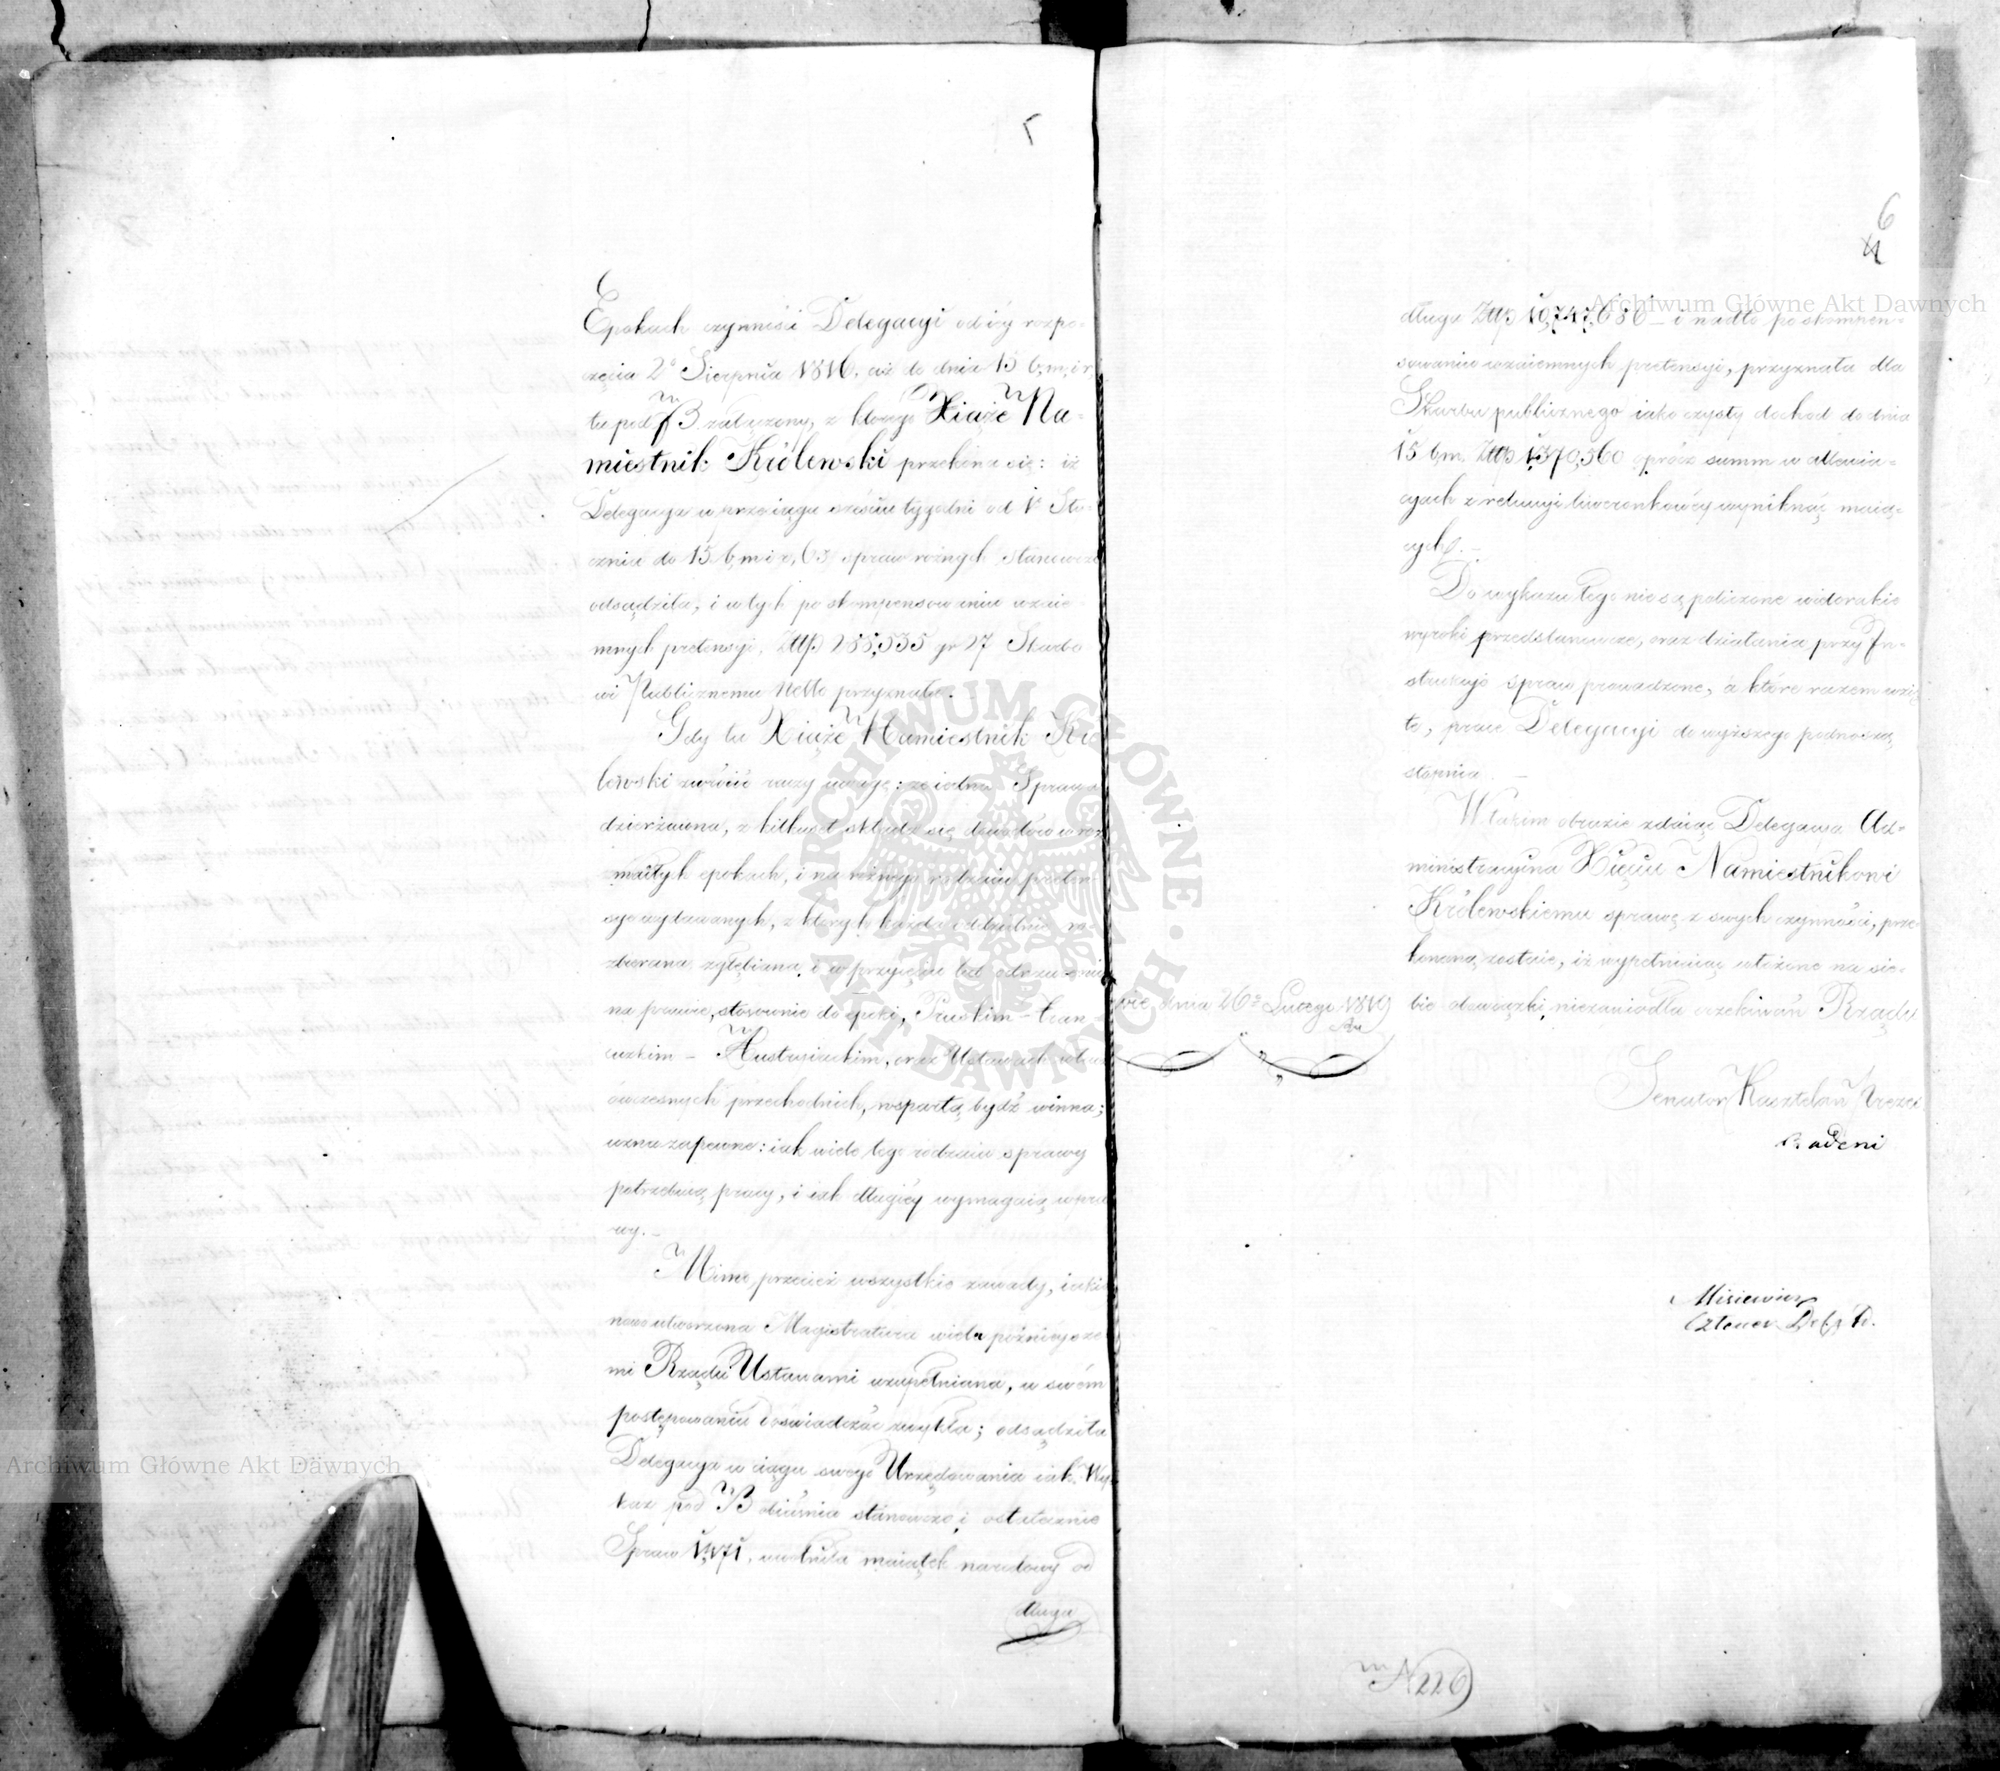 5
Epokach czynności Delegacyi od iéy rozpo-
częcia 2º Sierpnia 1816, aż do dnia 15 b, m, i r,
tu pod B załączony, z którego Xiąże Na-
miestnik Królewski przekona się: iż
Delegacya w przeciągu sześciu tygodni od 1º Sty-
cznia do 15 b, m i r, 63 spraw różnych stanowczo
odsądziła, i w tych po skompensowaniu wzaie-
mnych pretensyi, Złłp 285,535 gr 27 Skarbo
wi Publicznemu Netto przyznała.
Gdy tu Xiąże Namiestnik Kró
lewski zwrócić raczy uwagę: że iedna Sprawa
dzierżawna, z kilkuset składa się dowodów w roz
maitych epokach, i na różnego rodzaiu preten
sye wydawanych, z których każda oddzielnie ro-
zbierana, zgłębiana, i w przyięciu lub odrzuceniu
na prawie, stosownie do epoki, Pruskim – Fran-
cuzkim – Austryiackim, oraz Ustawach
ówczesnych przechodnich, wsparta bydź winna;
uzna zapewne: iak wiele tego rodzaiu sprawy
potrzebuią pracy, i iak długiéy wymagaią wpra
wy. –
Mimo przecież wszystkie zawady, iakie
nowo utworzona Magistratura wielu późnieysze
mi Rządu Ustawami uzupełniana, w swém
postępowaniu doświadczać zwykła; odsądziła
Delegacya w ciągu swego Urzędowania iak Wy-
kaz pod B obiaśnia stanowczo i ostatecznie
Spraw 1,471, uwolniła maiątek narodowy od
długu
6
4
długu Złłp 10,747,686 – i nadto po skompen-
sowaniu wzaiemnych pretensyi, przyznała dla
Skarbu publicznego iako czysty dochod do dnia
15 b, m. Złłp 1,370,560 oprócz summ w
cyach z relucyi liwerunkowéy wyniknąć maią-
cych. –
Do wykazu tego nie są policzone wielorakie
wyroki przedstanowcze, oraz działania przy In-
strukcyi spraw prowadzone, a które razem wzię
te, prace Delegacyi do wyższego podnoszą
stopnia. –
W takim obrazie zdaiąc Delegacya Ad-
ministracyina Xięciu Namiestnikowi
Królewskiemu sprawę z swych czynności, prze
konaną zostaie, iż wypełniaiąc włożone na sie-
bie obowiązki, niezawiodła oczekiwań Rządu
wie, dnia 26º Lutego 1819
Senator Kasztelan Prezes
Badeni
Misiewicz
Członek
N 226
Archiwum Główne Akt Dawnych
Archiwum Główne Akt Dawnych
ARCHIWUM GŁÓWNE AKT DAWNYCH